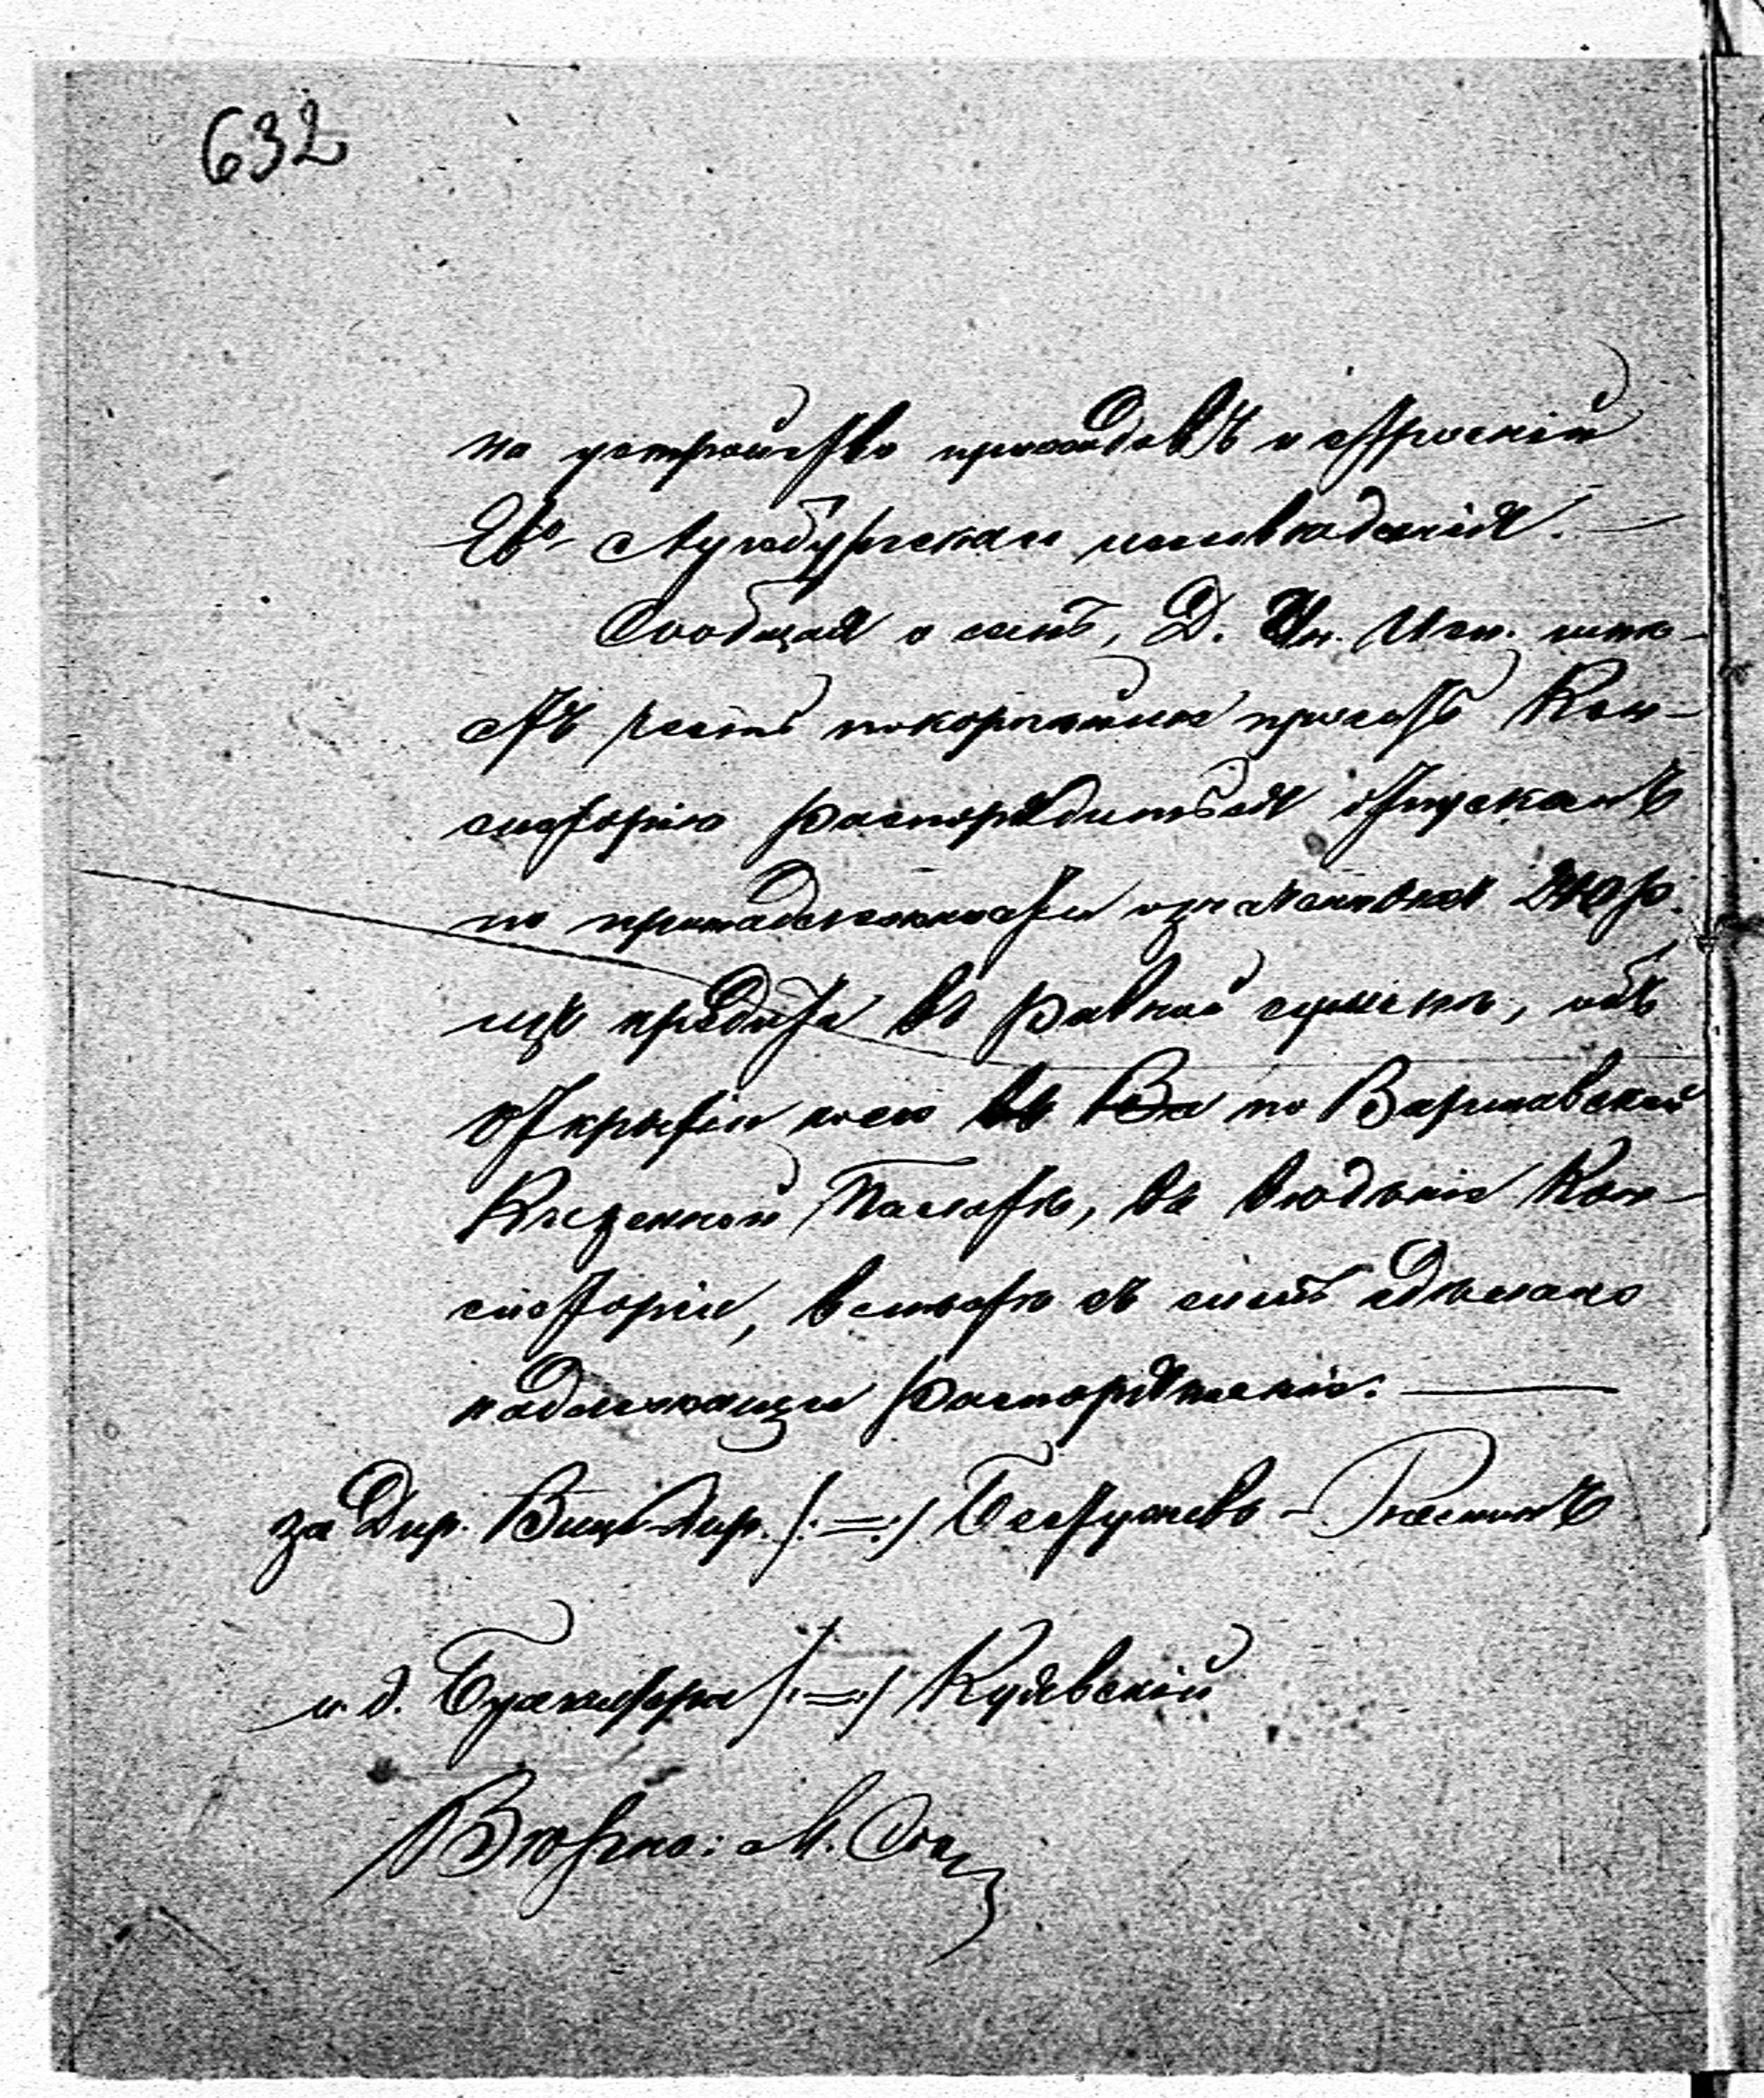 632
на устройство приходовъ и строеній
Ев. Аугсбургскаго исповѣданія.
Сообщая о семъ, Д. Ин. Исп. имѣ-
етъ честь покорнѣйше просить Кон-
систорію распорядиться отпускомъ
по принадлежности означенныхъ р.
изъ кредита въ равной суммѣ, объ
открытіи коего по Варшавской
Казенной Палатѣ, въ вѣдѣніе Кон-
систоріи, вмѣстѣ съ симъ сдѣлано
надлежащее распоряженіе.
за Дир. Вице-Дир. /:=:/ Бестужевъ-Рюминъ
и. д. Бухгалтера /:=:/ Куявскій
Вѣрно: М.